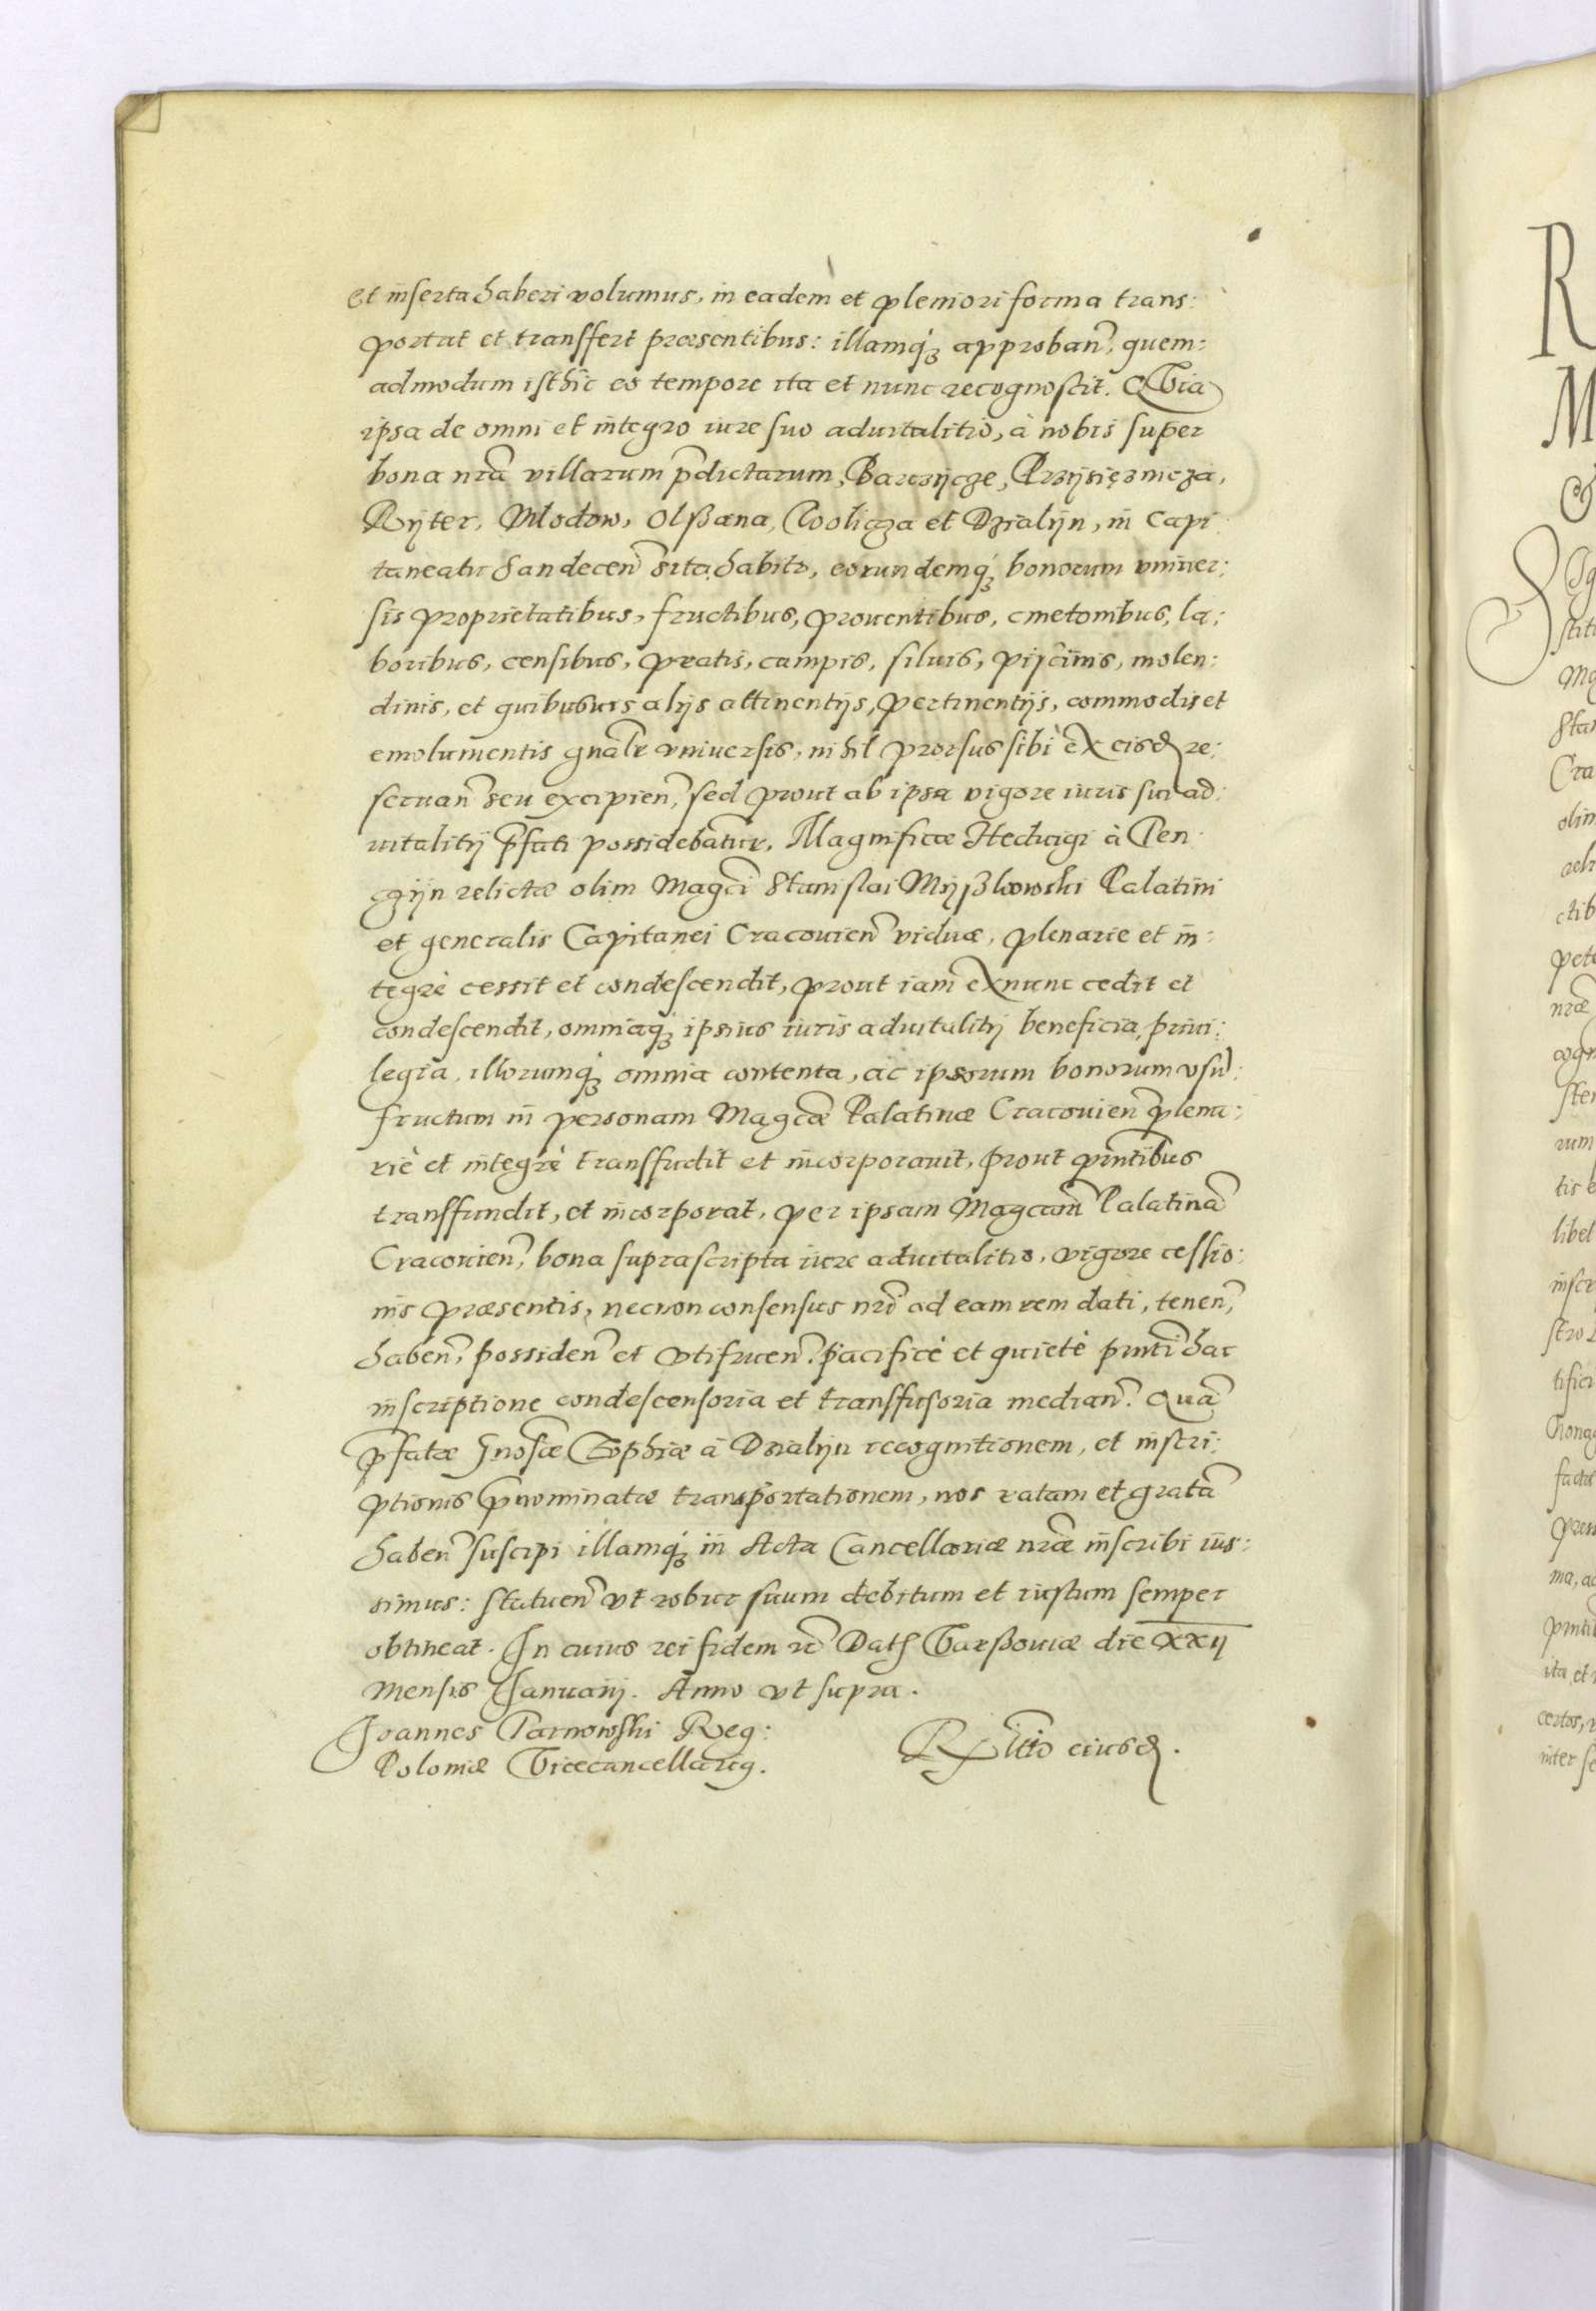 et inserta haberi volumus, in eadem et pleniori forma trans:
portat et transfert præsentibus: illamq́ꝫ approbañ, quem:
admodum isthic eo tempore ita et nunc recognoscit. Quia
ipsa de omni et integro iure suo aduitalitio, à nobis super
bona nrã villarum p̃dictarum, Barczycze, Przysięznicza,
Ryter, Młodow, Olßana, Wolicza et Dzialyn, in Capi
taneatu Sandeceñ sita habito, eorundemq́ꝫ bonorum vniuer:
sis proprietatibus, fructibus, prouentibus, cmetonibus, la:
boribus, censibus, pratis, campis, siluis, pijscinis, molen:
dinis, et quibusuis alijs attinentijs, pertinentijs, commodis et
emolumentis gnãlr vniuersis, nihil prorsus sibi ex eisd re:
seruañ seu excipieñ, sed prout ab ipsa vigore iuris sui ad:
uitalitij p̃fati possidebantur, Magnificæ Hedwigi à Ten
czyn relictæ olim Magci Stanislai Myßkowski Palatini
et generalis Capitanei Cracouieñ viduæ, plenarie et in:
tegrè cessit et condescendit, prout iam ex nunc cedit et
condescendit, omniaq́ꝫ ipsius iuris aduitalitij beneficia, priui:
legia, illorumq́ꝫ omnia contenta, ac ipsorum bonorum vsu:
fructum in personam Magcæ Palatinæ Cracouieñ plena:
riè et integrè transfudit et incorporauit, prout pr̃ntibus
transfundit, et incorporat, per ipsam Magcam Palatinã
Cracouieñ, bona suprascripta iure aduitalitio, vigore cessio:
nis præsentis, necnon consensus nrĩ ad eam rem dati, teneñ,
habeñ, possideñ et vtifrueñ. pacificè et quietè pr̃nti hac
inscriptione condescensoria et transfusoria mediañ. Quã
p̃fatæ Gnosæ Zophiæ à Dzialyn recognitionem, et inscri:
ptionis p̃nominatæ transportationem, nos ratam et gratã
habeñ suscipi illamq́ꝫ in Acta Cancellariæ nræ inscribi ius:
simus: statueñ vt robur suum debitum et iustum semper
obtineat. In cuius rei fidem rc̃ Datꝭ Varßouiæ die XXij
Mensis Januarij. Anno vt supra.
Joannes Tarnowski Reg:
Poloniæ Vicecancellariꝰ.
Rłtio eiusd.